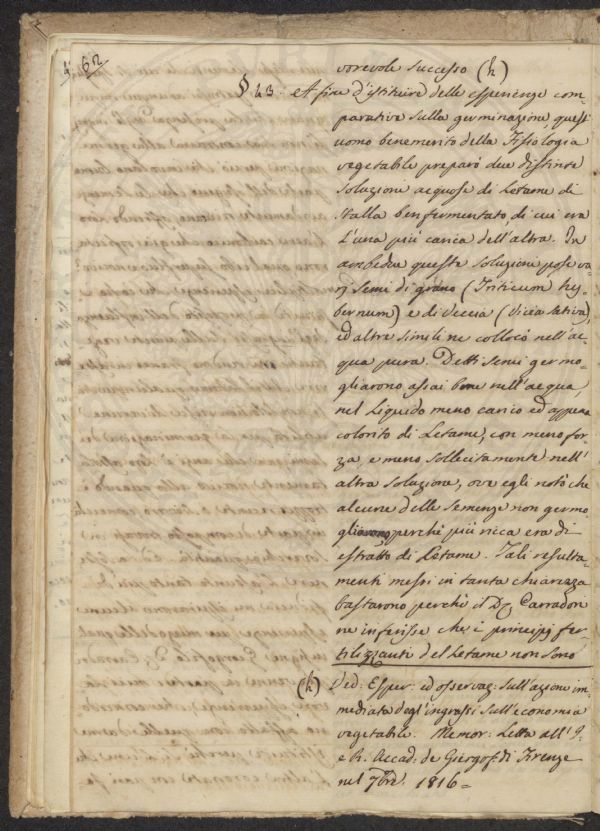 62
vorevole successo (h)
§ 43. A fine d'istituire delle esperienze com-
parative sulla germinazione, quest'
uomo benemerito della Fisiologia
vegetabile preparò due distinte
soluzione acquose di Letame di
stalla ben fermentato, di cui era
L'una più carica dell'altra. In
ambedue queste soluzione pose va-
rj semi di grano (Triticum hy-
bernum) e di Veccia (Vicia sativa),
ed altre simili ne collocò nell'ac-
qua pura. Detti semi germo-
gliarono assai bene nell'acqua,
nel Liquido meno carico ed appena
colorito di Letame, con meno for-
za, e meno sollecitamente nell'
altra soluzione, ove egli notò che
alcune delle Semenze non germo
gliarono perchè più ricca era di
estratto di Letame. Tali resulta-
menti messi in tanta chiarezza
bastarono perchè il Dr. Carradori
ne inferisse che i principj fer-
tilizzanti del Letame non sono
(h) Ved: Esper: ed osservaz: sull'azione im-
mediata degl'ingrassi sull'economia
vegetabile. Memor: Letta all' I.
e R. Accad: de Georgof: di Firenze
nel 7bre 1816=